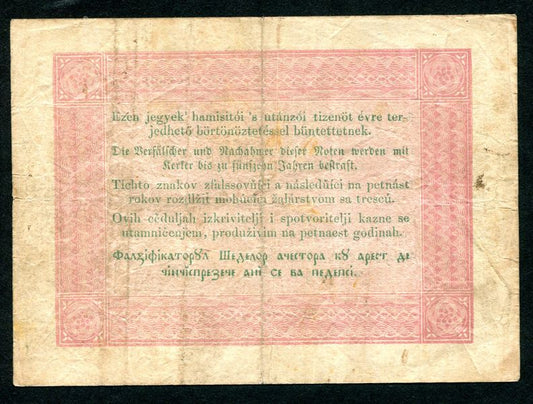 Ezen jegyek' hamisítói 's utánzói tizenöt évre ter-
jedhető börtönöztetéssel büntettetnek.
Die Verfälscher und Nachahmer dieser Noten werden mit
Kerker bis zu fünfzehn Jahren bestraft.
Tichto znakov zfalssovňíci a následňíci na petnást
rokov rozďlžiť mohúcim žalárstvom sa trescú.
Ovih cěduljah izkrivitelji i spotvoritelji kazne se
utamničenjem, produživim na petnaest godinah.
Фалзіфікаторꙋл Шеделор ачестора кꙋ арест де
чінчіспрезече ані се ва педепсі.